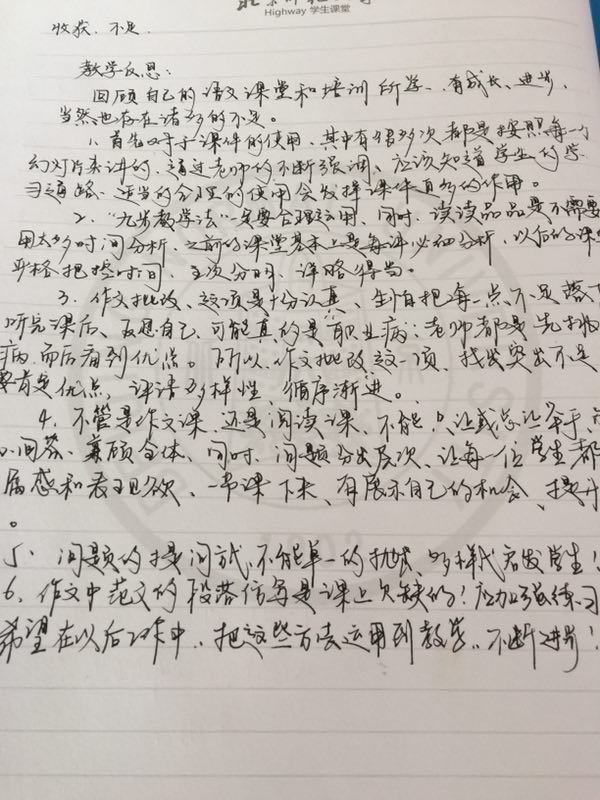 Highway 学生课堂
收获、不足
教学反思:
回顾自己的语文课堂和培训所学、有成长、进步,
当然也存在诸多的不足。
1、首先对于课件的使用、其中有很多次都是按照每一个
幻灯片来讲的、通过老师的不断强调、应该知道学生的学
习通路、适当的合理的使用会发挥课件真多的作用。
2、“九步教学法”一定要合理运用、同时、读读品品是不需要
用太多时间分析、之前的课堂基本上是每详必细分析、以后的课堂
严格把控时间、主次分明、详略得当。
3、作文批改、这项是十分认真、生怕把每一点不足落下
听完课后、反思自己、可能真的是职业病:老师都是先找
病而后看到优点。所以、作文批改这一项、找出突出不足
要肯定优点、评语多样性、循序渐进。
4、不管是作文课、还是阅读课、不能只让或总让举手
回答、兼顾全体、同时、问题分出层次、让每一位学生都
属感和表现欲、一节课下来、有展示自己的机会、提升
。
5、问题的提问方式、不能单一的抛出、多样式启发学生!
6、作文中范文的段落仿写是课上欠缺的!应加强练习
希望在以后工作中、把这些方法运用到教学、不断进步!